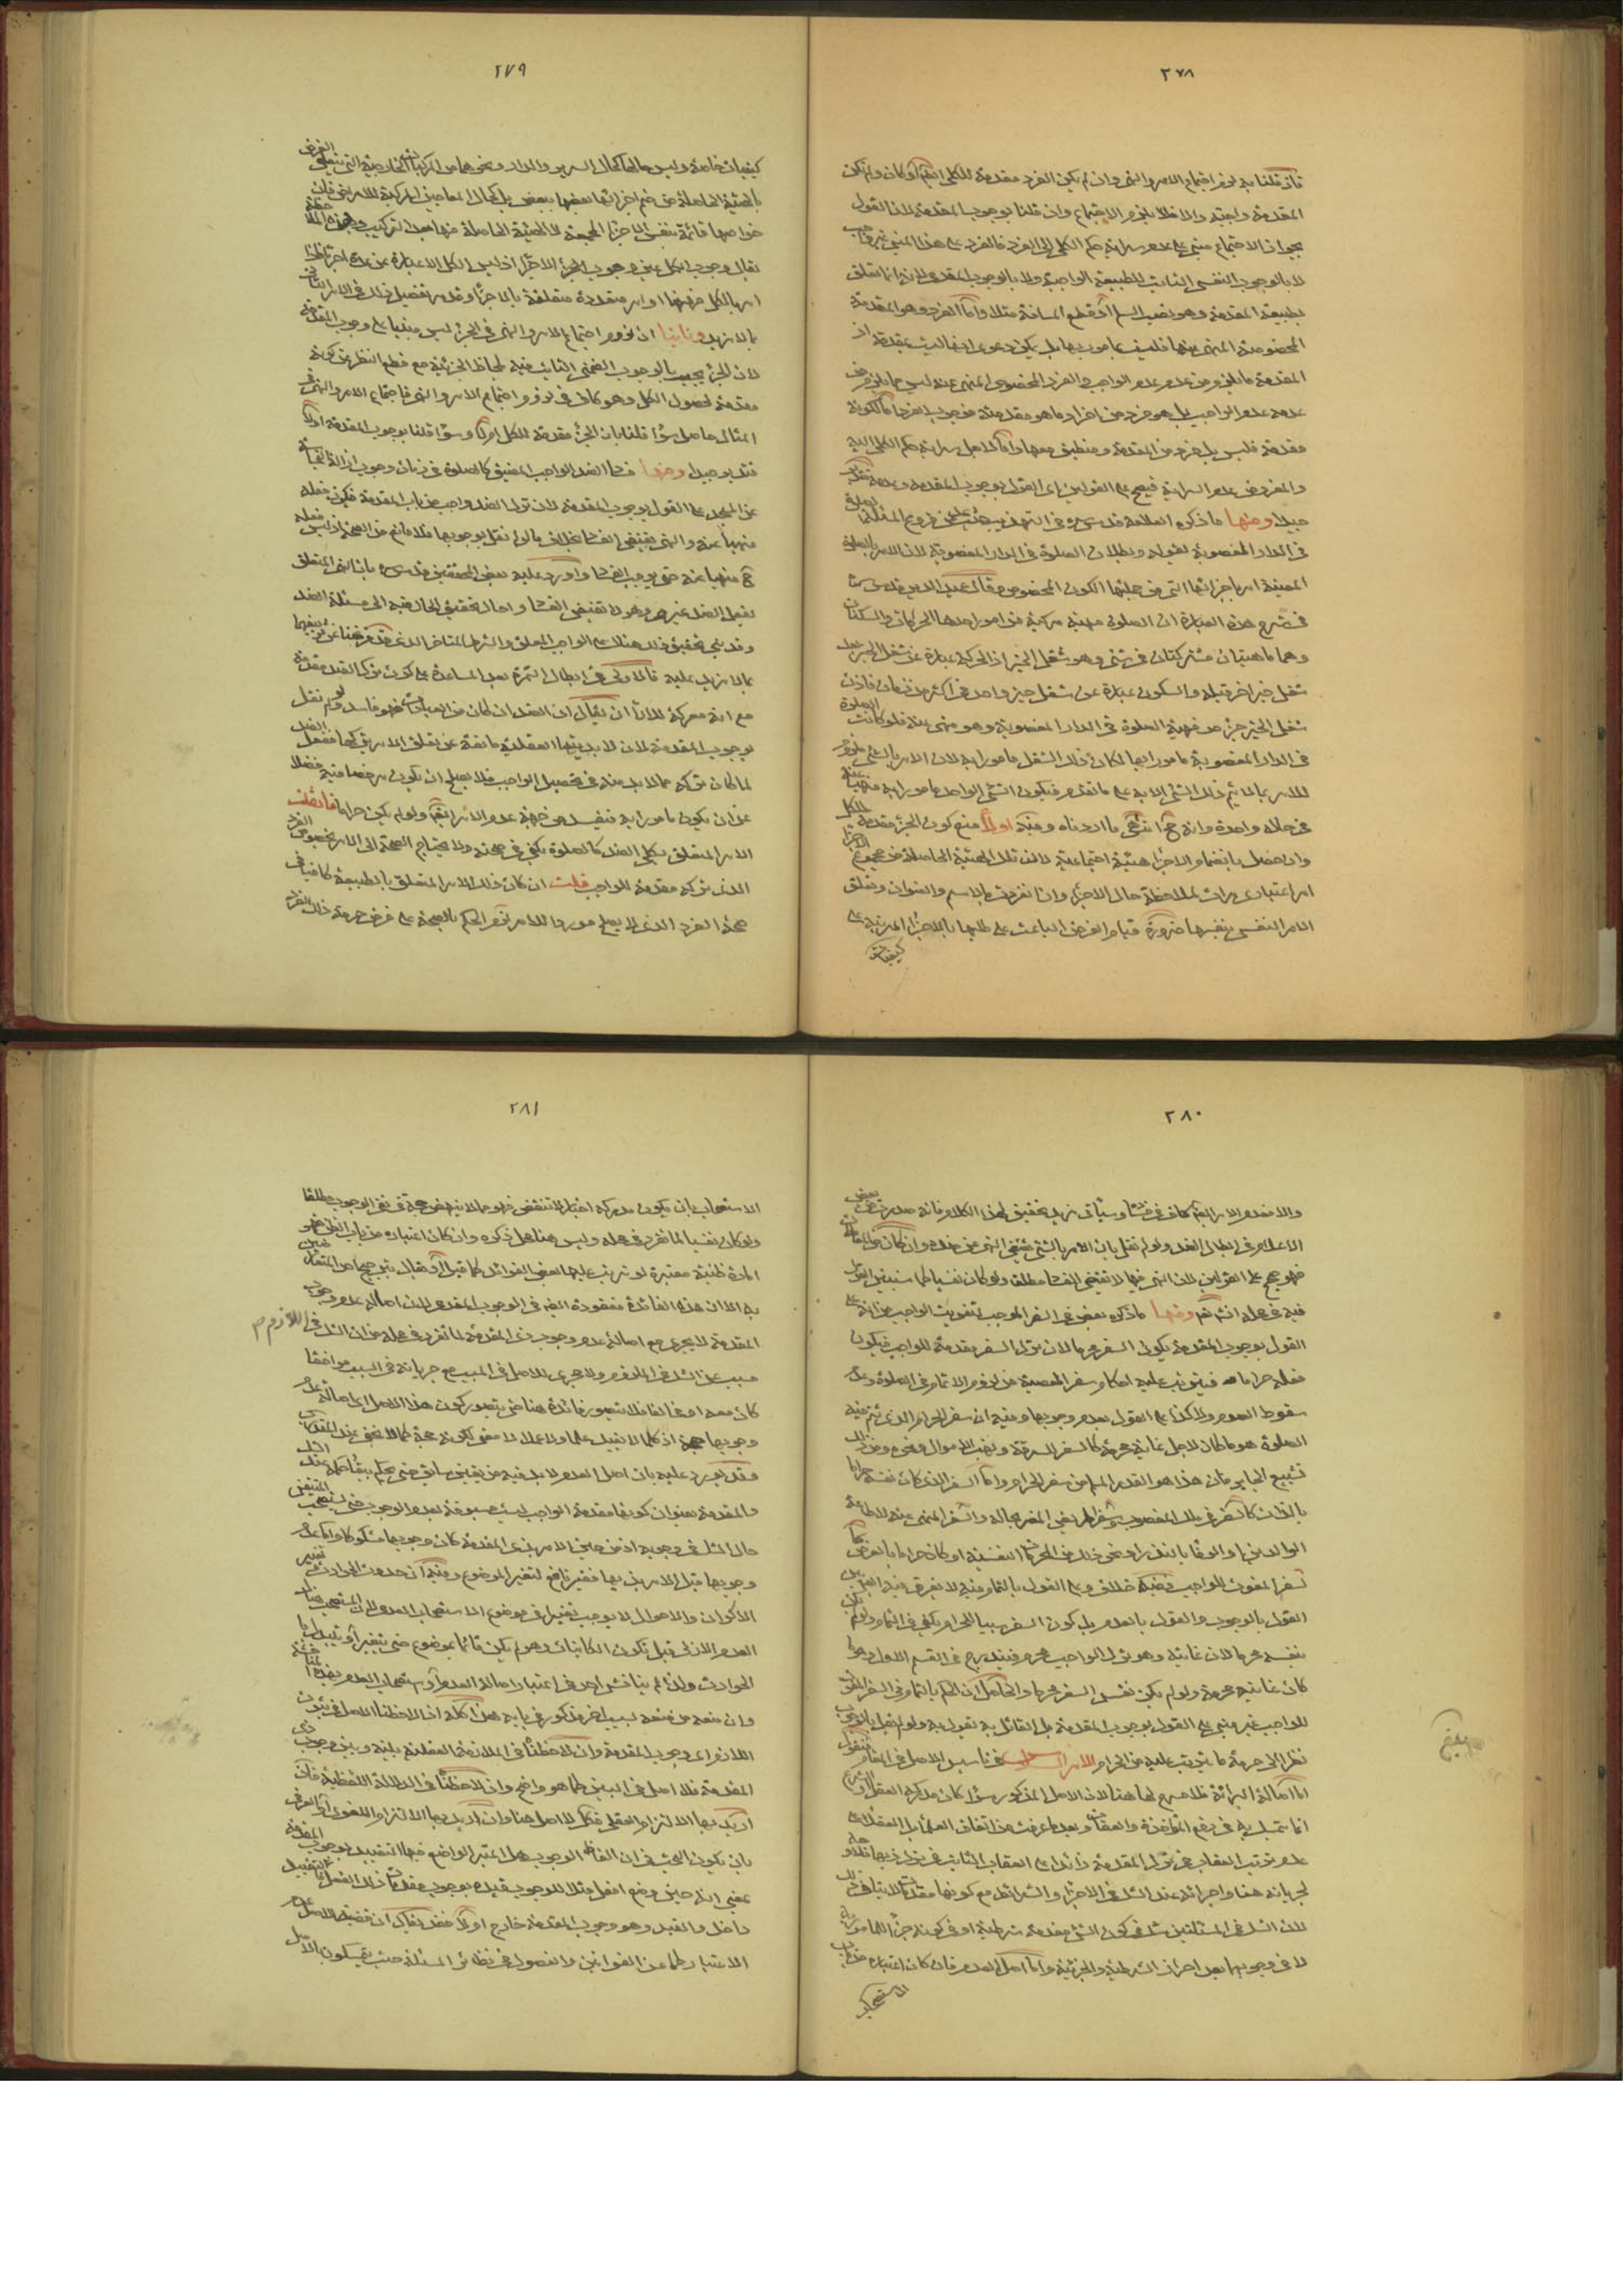 ٢٧٨
فان قلنا به لزم اجتماع الامر والنهى وان لم يكن الفرد مقدمة للكلى
المقدمة واجبة والا فلا يلزم الاجتماع وان قلنا بوجوب المقدمة لان القول
بجواز الاجتماع مبنى على عدم سراية حكم الكلى الى الفرد فالفرد على هذا المبنى غير واجب
لا بالوجوب النفسى الثابت للطبيعة الواجبة ولا بالوجوب المقدمى لانه انما تعلق
بطبيعة المقدمة وهو نصب السلم او قطع المسافة مثلا واما الفرد وهو المقدمة
المخصوصة المنهى عنها فليست مامور بها بل يمكن دعوى انها ليست بمقدمة اذ
المقدمة ما يلزم من عدمه عدم الواجب والفرد المخصوص المنهى عنه ليس مما يلزم من
عدمه عدم الواجب بل هو فرد من افراد ما هو مقدمة
مقدمة فليس بل فرد من المقدمة ومنطبق معها
والمفروض عدم السراية فيصح على القولين اى القول بوجوب المقدمة وعدمه
جيدا ومنها ما ذكره العلامة قدس سره فى التهذيب
فى الدار المغصوبة بقوله وبطلان الصلوة فى الدار المغصوبة لان الامر بالصلوة
المعينة امر باجزائها التى من جملتها الكون المخصوص وقال عميد الدين قدس سره
فى شرح هذه العبارة ان الصلوة مهية مركبة من امور احدها الحركات والسكنات
وهما ماهيتان مشتركتان فى شىء وهو شغل الحيز اذ الحركة عبارة عن شغل الحيز بعد
شغل حيز اخر قبله والسكون عبارة عن شغل حيز واحد فى اكثر من زمان فاذن
شغل الحيز جزء من مهية الصلوة فى الدار المغصوبة وهو منهى عنه فلو كانت الصلوة
فى الدار المغصوبة مامورا بها لكان ذلك الشغل مامورا به لان الامر بالشىء
للامر بما لا يتم ذلك الشىء الا به على ما تقدم فيكون الشىء الواحد مامورا به منهيا عنه
فى حالة واحدة وانه مح انتهى ما اردناه وفيه اولا منع كون الجزء مقدمة للكل
وان حصل بانضمام الاجزاء هيئة اجتماعية لان تلك الهيئة الحاصلة من مجموع الاجزاء
امر اعتبارى مرات لملاحظة حال الاجزاء وان انفردت بالاسم والعنوان وتعلق
الامر النفسى بنفسها ضرورة قيام الغرض الباعث على طلبها بالاجزاء
كيفيات
٢٧٩
كيفيات خاصة وليس حالها كحال السرير والدار ونحوهما من المركبات الخارجية التى يتعلق الغرض
بالهيئة الحاصلة من ضم اجزائها بعضها ببعض بل كحال المعاجين المركبة
خواصها قائمة بنفس الاجزاء المجتمعة لا الهيئة الحاصلة منها بعد التركيب
يقال وجوب الكل عين وجوب الاجزاء اذ ليس الكل الا عبارة عن عدة اجزاء
امر بالكل منها او امر متعددة متعلقة بالاجزاء وقد مر تفصيل ذلك فى الامر الثانى
بما لا مزيد وثانيا ان لزوم اجتماع الامر والنهى فى الجزء ليس مبنيا على وجوب المقدمة
لان الجزء يجب بالوجوب الضمنى الثابت فيه بلحاظ الجزئية مع قطع النظر عن كونه
مقدمة لحصول الكل وهو كاف فى لزوم اجتماع الامر والنهى فاجتماع الامر والنهى فى
المثال حاصل سواء قلنا بان الجزء مقدمة للكل ام لا وسواء قلنا بوجوب المقدمة ام لا
فتدبر جيدا ومنها فساد الضد الواجب المضيق كالصلوة فى زمان وجوب ازالة النجاسة
عن المسجد على القول بوجوب المقدمة لان ترك الضد واجب من باب المقدمة فيكون فعله
منهيا عنه والنهى يقتضى الفساد بخلاف ما لو لم نقل بوجوبها فلا مانع من الصحة اذ ليس فعله
ح منهيا عنه حتى يوجب الفساد واورد عليه بعض المحققين قدس سره بان النهى المتعلق
بفعل الضد غيرى وهو لا يقتضى الفساد واحال تحقيق الحال فيه الى مسئلة الضد
مع انه معركة للآراء ان يقال ان الضد ان كان من العبادات فهو فاسد ولو لم نقل
بوجوب المقدمة لان لابديتها العقلية مانعة عن تعلق الامر بتركها ففعل الضد
لما كان تركه مما لابد منه فى تحصيل الواجب فلا يصلح ان يكون مرخصا فيه فضلا
عن ان يكون مامورا به فيفسد من جهة عدم الامر ايضا ولو لم يكن حراما فان قلت
الامر المتعلق بكلى الضد كالصلوة يكفى فى صحته ولا يحتاج الصحة الى الامر بخصوص الفرد
الذى تركه مقدمة للواجب قلت ان كان ذلك الامر المتعلق بالطبيعة كافيا فى
صحة الفرد الذى لا يصلح موردا للامر لزم الحكم بالصحة على فرض حرمة ذلك الفرد
٢٨٠
والا فعدم الامر ايضا كاف فى فساده وسياتى مزيد تحقيق لهذا الكلام فانه صدر من بعض
الاعلام فى ابطال الضد ولو لم نقل بان الامر بالشىء يقتضى النهى عن ضده
فهو صحيح على القولين لان النهى فيها لا يقتضى الفساد مطلقا ولو كان نفسيا كما سنبين القول
فيه فى محله انشاء الله ومنها ما ذكره بعض فى السفر الموجب لتفويت الواجب من انه على
القول بوجوب المقدمة يكون السفر محرما لان ترك السفر مقدمة للواجب فيكون
فعله حراما فيترتب عليه احكام سفر المعصية من لزوم الاتمام فى الصلوة وعدم
سقوط الصوم ولا كذا على القول بعدم وجوبها وفيه ان سفر الحرام الذى يتم فيه
الصلوة هو ما كان لاجل غاية محرمة كالسفر للسرقة ونهب الاموال ونحوه
تشييع الجاير فان هذا هو القدر المسلم من سفر الحرام واما السفر الذى كان نفسه حراما
بالذات كالسفر فى ملك المغصوب وسفر المريض المضر بحاله والسفر المنهى عنه لاطاعة
الوالدين او الوفا بالنذر او نحو ذلك من المحرمات النفسية او كان حراما بالعرض
لسفر المفوت للواجب ففيه خلاف وعلى القول بالاتمام فيه لا يفرق فيه بين
القول بالوجوب والقول بالعدم بل كون السفر سببا للحرام يكفى فى اتمام ولو لم يكن
بنفسه محرما لان غايته وهو ترك الواجب محرم فيندرج فى القسم الاول وهو ما
كان غايته محرمة ولو لم يكن نفس السفر محرما والحاصل ان الحكم بالتمام فى السفر المفوت
للواجب غير مبنى على القول بوجوب المقدمة بل القائل به يقول به ولو لم نقل بالوجوب
نظرا الى حرمة ما يترتب عليه من الحرام الامر السادس فى تاسيس الاصل فى المقام فنقول
اما اصالة البرائة فلا مسرح لها هنا لان الاصل المذكور سواء كان مدركه العقل او الشرع
انما يتمسك به فى رفع المؤاخذة والعقاب وبعد ما عرفت من اتفاق العلماء بل العقلاء على
عدم ترتب العقاب على ترك المقدمة زائدا على العقاب الثابت فى ترك ذيها
لجريانه هنا واجرائه عند الشك فى الاجزاء والشرائط مع كونها مقدمات لا ينافى ذلك
لان الشك فى المسئلتين شك فى كون الشىء مقدمة شرطية او فى كونه جزء للمامور به
لا فى وجوبها بعد احراز الشرطية والجزئية واما اصل العدم فان كان اعتباره من باب
الاستصحاب
٢٨١
الاستصحاب بان يكون مدركه اخبار لا تنقض فهو مما لا ينهض حجة فى نفى الوجوب مطلقا
ولو كان نفسيا لما تقرر فى محله وليس هنا محل ذكره وان كان اعتباره من باب الظن فهو
امارة ظنية معتبرة لو ترتب عليها بعض الفوائد
به الا ان هذه الفائدة مفقودة ايضا فى الوجوب المقدمى لان اصالة عدم وجوب
المقدمة لا يجرى مع اصالة عدم وجوب ذى المقدمة لما تقرر فى محله من ان الشك فى اللازم
مسبب عن الشك فى الملزوم ولا مجرى للاصل فى المسبب مع جريانه فى السبب موافقا
كان معه او مخالفا فلا يتصور فائدة هنا حتى يتصور كون هذا الاصل اى اصالة عدم
وجوبها حجة اذ كلما لا يفيد علما ولا عملا لا معنى لكونه حجة كما لا يخفى عند المتدبر
وقد يورد عليه بان اصل العدم لابد فيه من يقين سابق حتى يحكم ببقائه عند الشك
والمقدمة بعنوان كونها مقدمة الواجب ليست مسبوقة بعدم الوجوب حتى يستصحب المتيقن
حال الشك فى وجوبه اذ من حين الامر بذى المقدمة كان وجوبها مشكوكا واما عدم
وجوبها قبل الامر بذيها فغير نافع لتغير الموضوع وفيه ان حدوث الحوادث
الاكوان والاحوال لا يوجب تغييرا فى موضوع الاستصحاب العدمى لان المستصحب هنا
العدم الازلى قبل تكون الكائنات وهو لم يكن قائما بموضوع حتى يتغير او يتبدل
الحوادث ولذا لم يناقش احد فى اعتبار اصالة العدم واستصحاب العدم
وان منعه من منعه لسبب اخر مذكور فى بابه هذا كله اذا لاحظنا الاصل فى ثبوت
اللازم اى وجوب المقدمة وان لاحظناه فى الملازمة العقلية بينه وبين وجوب ذى
المقدمة فلا اصل فى البين كما هو واضح وان لاحظناه فى الدلالة اللفظية فان
اريد بها الالتزام العقلى فكل لا اصل هنا وان اريد بها الالتزام اللغوى او العرفى
بان يكون البحث فى ان الفاظ الوجوب هل اعتبر الواضع فيها التقييد بوجوب المقدمة
بمعنى انه حين وضع افعل مثلا للوجوب قيده بوجوب مقدمات ذلك الفعل فالتقييد
داخل والقيد وهو وجوب المقدمة خارج او لا فقد يقال ان قضية الاصل عدم
الاعتبار كما عن القوانين والفصول فى نظائر المسئلة حيث يتمسكون بالاصل